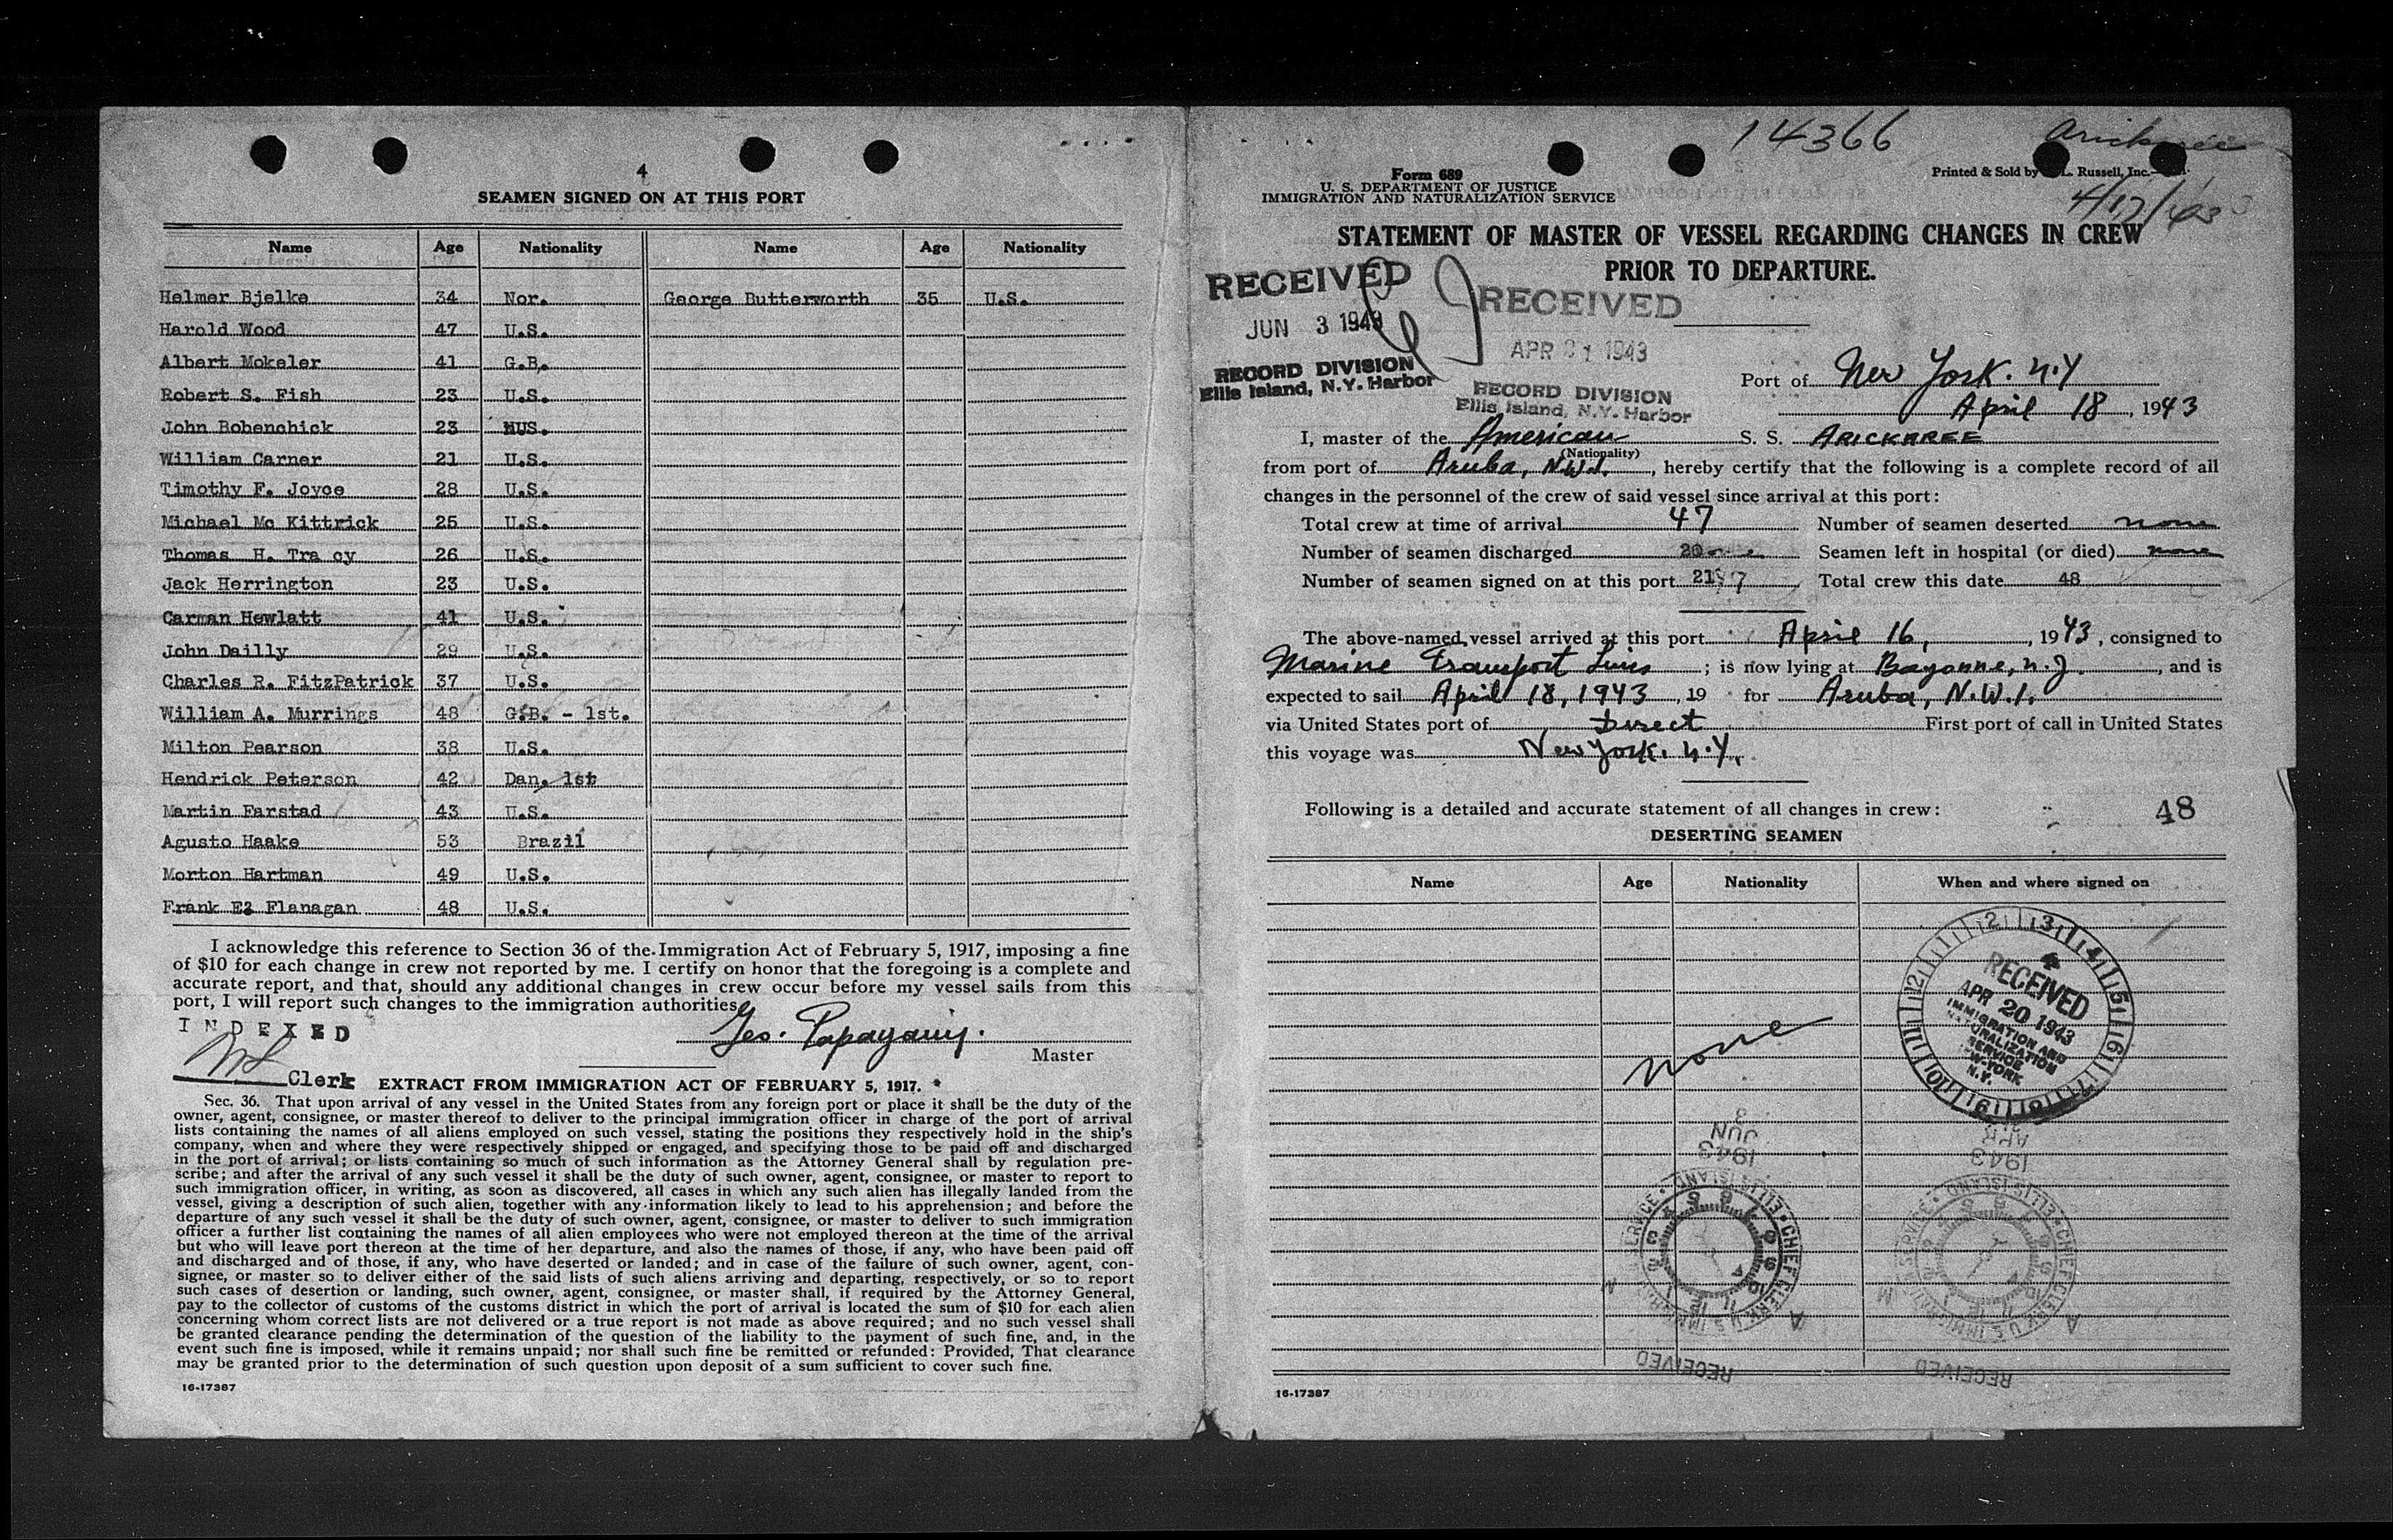 4
SEAMEN SIGNED ON AT THIS PORT
Name Age Nationality Name Age Nationality
Helmer Bjelke 34 Nor. George Butterworth 35 U.S.
Harold Wood 47 U.S.
Albert Mokeler 41 G.B.
Robert S. Fish 23 U.S.
John Bohenchick 23 US.
William Carner 21 U.S.
Timothy F. Joyce 28 U.S.
Michael Mc Kittrick 25 U.S.
Thomas H. Tra cy 26 U.S.
Jack Herrington 23 U.S.
Carman Hewlatt 41 U.S.
John Dailly 29 U.S.
Charles R. FitzPatrick 37 U.S.
William A. Murrings 48 G.B. - 1st.
Milton Pearson 38 U.S.
Hendrick Peterson 42 Dan. 1st
Martin Farstad 43 U.S.
Agusto Haake 53 Brazil
Morton Hartman 49 U.S.
Frank E2 Flanagan 48 U.S.
I acknowledge this reference to Section 36 of the Immigration Act of February 5, 1917, imposing a fine
of $10 for each change in crew not reported by me. I certify on honor that the foregoing is a complete and
accurate report, and that, should any additional changes in crew occur before my vessel sails from this
port, I will report such changes to the immigration authorities.
INDEXED
Geo. Papayanis.
Master
Clerk
EXTRACT FROM IMMIGRATION ACT OF FEBRUARY 5, 1917.
Sec. 36. That upon arrival of any vessel in the United States from any foreign port or place it shall be the duty of the
owner, agent, consignee, or master thereof to deliver to the principal immigration officer in charge of the port of arrival
lists containing the names of all aliens employed on such vessel, stating the positions they respectively hold in the ship's
company, when and where they were respectively shipped or engaged, and specifying those to be paid off and discharged
in the port of arrival; or lists containing so much of such information as the Attorney General shall by regulation pre-
scribe; and after the arrival of any such vessel it shall be the duty of such owner, agent, consignee, or master to report to
such immigration officer, in writing, as soon as discovered, all cases in which any such alien has illegally landed from the
vessel, giving a description of such alien, together with any information likely to lead to his apprehension; and before the
departure of any such vessel it shall be the duty of such owner, agent, consignee, or master to deliver to such immigration
officer a further list containing the names of all alien employees who were not employed thereon at the time of the arrival
but who will leave port thereon at the time of her departure, and also the names of those, if any, who have been paid off
and discharged and of those, if any, who have deserted or landed; and in case of the failure of such owner, agent, con-
signee, or master so to deliver either of the said lists of such aliens arriving and departing, respectively, or so to report
such cases of desertion or landing, such owner, agent, consignee, or master shall, if required by the Attorney General,
pay to the collector of customs of the customs district in which the port of arrival is located the sum of $10 for each alien
concerning whom correct lists are not delivered or a true report is not made as above required; and no such vessel shall
be granted clearance pending the determination of the question of the liability to the payment of such fine, and, in the
event such fine is imposed, while it remains unpaid; nor shall such fine be remitted or refunded: Provided, That clearance
may be granted prior to the determination of such question upon deposit of a sum sufficient to cover such fine.
16-17387
14366
Form 689
U. S. DEPARTMENT OF JUSTICE
IMMIGRATION AND NATURALIZATION SERVICE
Printed & Sold by L. Russell, Inc.
STATEMENT OF MASTER OF VESSEL REGARDING CHANGES IN CREW
PRIOR TO DEPARTURE.
RECEIVED
JUN 3 1943
RECORD DIVISION
Ellis Island, N.Y. Harbor
RECEIVED
APR 21 1943
RECORD DIVISION
Ellis Island, N.Y. Harbor
Port of New York. N.Y
April 18, 1943
I, master of the American S. S. ARICKAREE
(Nationality)
from port of Aruba, N.W.I., hereby certify that the following is a complete record of all
changes in the personnel of the crew of said vessel since arrival at this port:
Total crew at time of arrival 47 Number of seamen deserted none
Number of seamen discharged 20 Seamen left in hospital (or died) none
Number of seamen signed on at this port 21 Total crew this date 48
The above-named vessel arrived at this port April 16, 1943, consigned to
Marine Transport Lines; is now lying at Bayonne, N.J., and is
expected to sail April 18, 1943, 19 for Aruba, N.W.I.
via United States port of Direct First port of call in United States
this voyage was New York. N.Y.
Following is a detailed and accurate statement of all changes in crew: 48
DESERTING SEAMEN
Name Age Nationality When and where signed on
none
RECEIVED
APR 20 1943
IMMIGRATION AND
NATURALIZATION
SERVICE
N.Y.
JUN 3
1943
APR 21
1943
CHIEF CLERK U.S. IMMIGRATION SERVICE ELLIS ISLAND
RECEIVED
CHIEF CLERK U.S. IMMIGRATION SERVICE ELLIS ISLAND
RECEIVED
16-17387